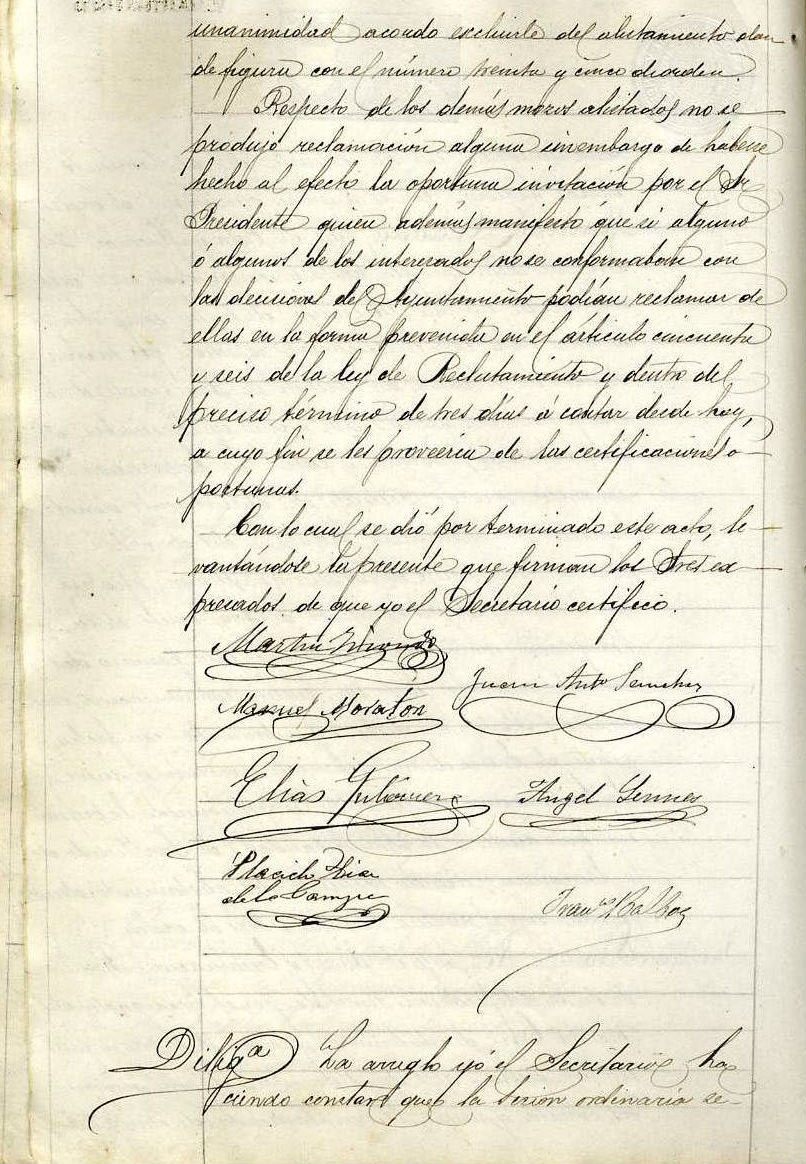 unanimidad acordo excluirle del alistamiento don-
de figura con el número treinta y cinco de orden.
Respecto de los demás mozos alistados no se
produjo reclamación alguna sin embargo de haberse
hecho al efecto la oportuna invitación por el Sr
Presidente quien además manifestó que si alguno
ó algunos de los interesados no se conformaban con
las decisiones del Ayuntamiento podían reclamar de
ellas en la forma prevenida en el artículo cincuenta
y seis de la ley de Reclutamiento y dentro del
preciso término de tres días á contar desde hoy,
a cuyo fin se les proveería de las certificaciones o-
portunas.
Con lo cual se dió por terminado este acto, le-
vantándose la presente que firman los Sres ex-
presados de que yo el Secretario certifico.
Martin
Juan Antº Sanchez
Manuel Moraton
Elías Gutierrez
Angel
Placido
de la
Franco Balboa
Diliga La arreglo yó el Secretario ha-
ciendo constar que la sesion ordinaria se-